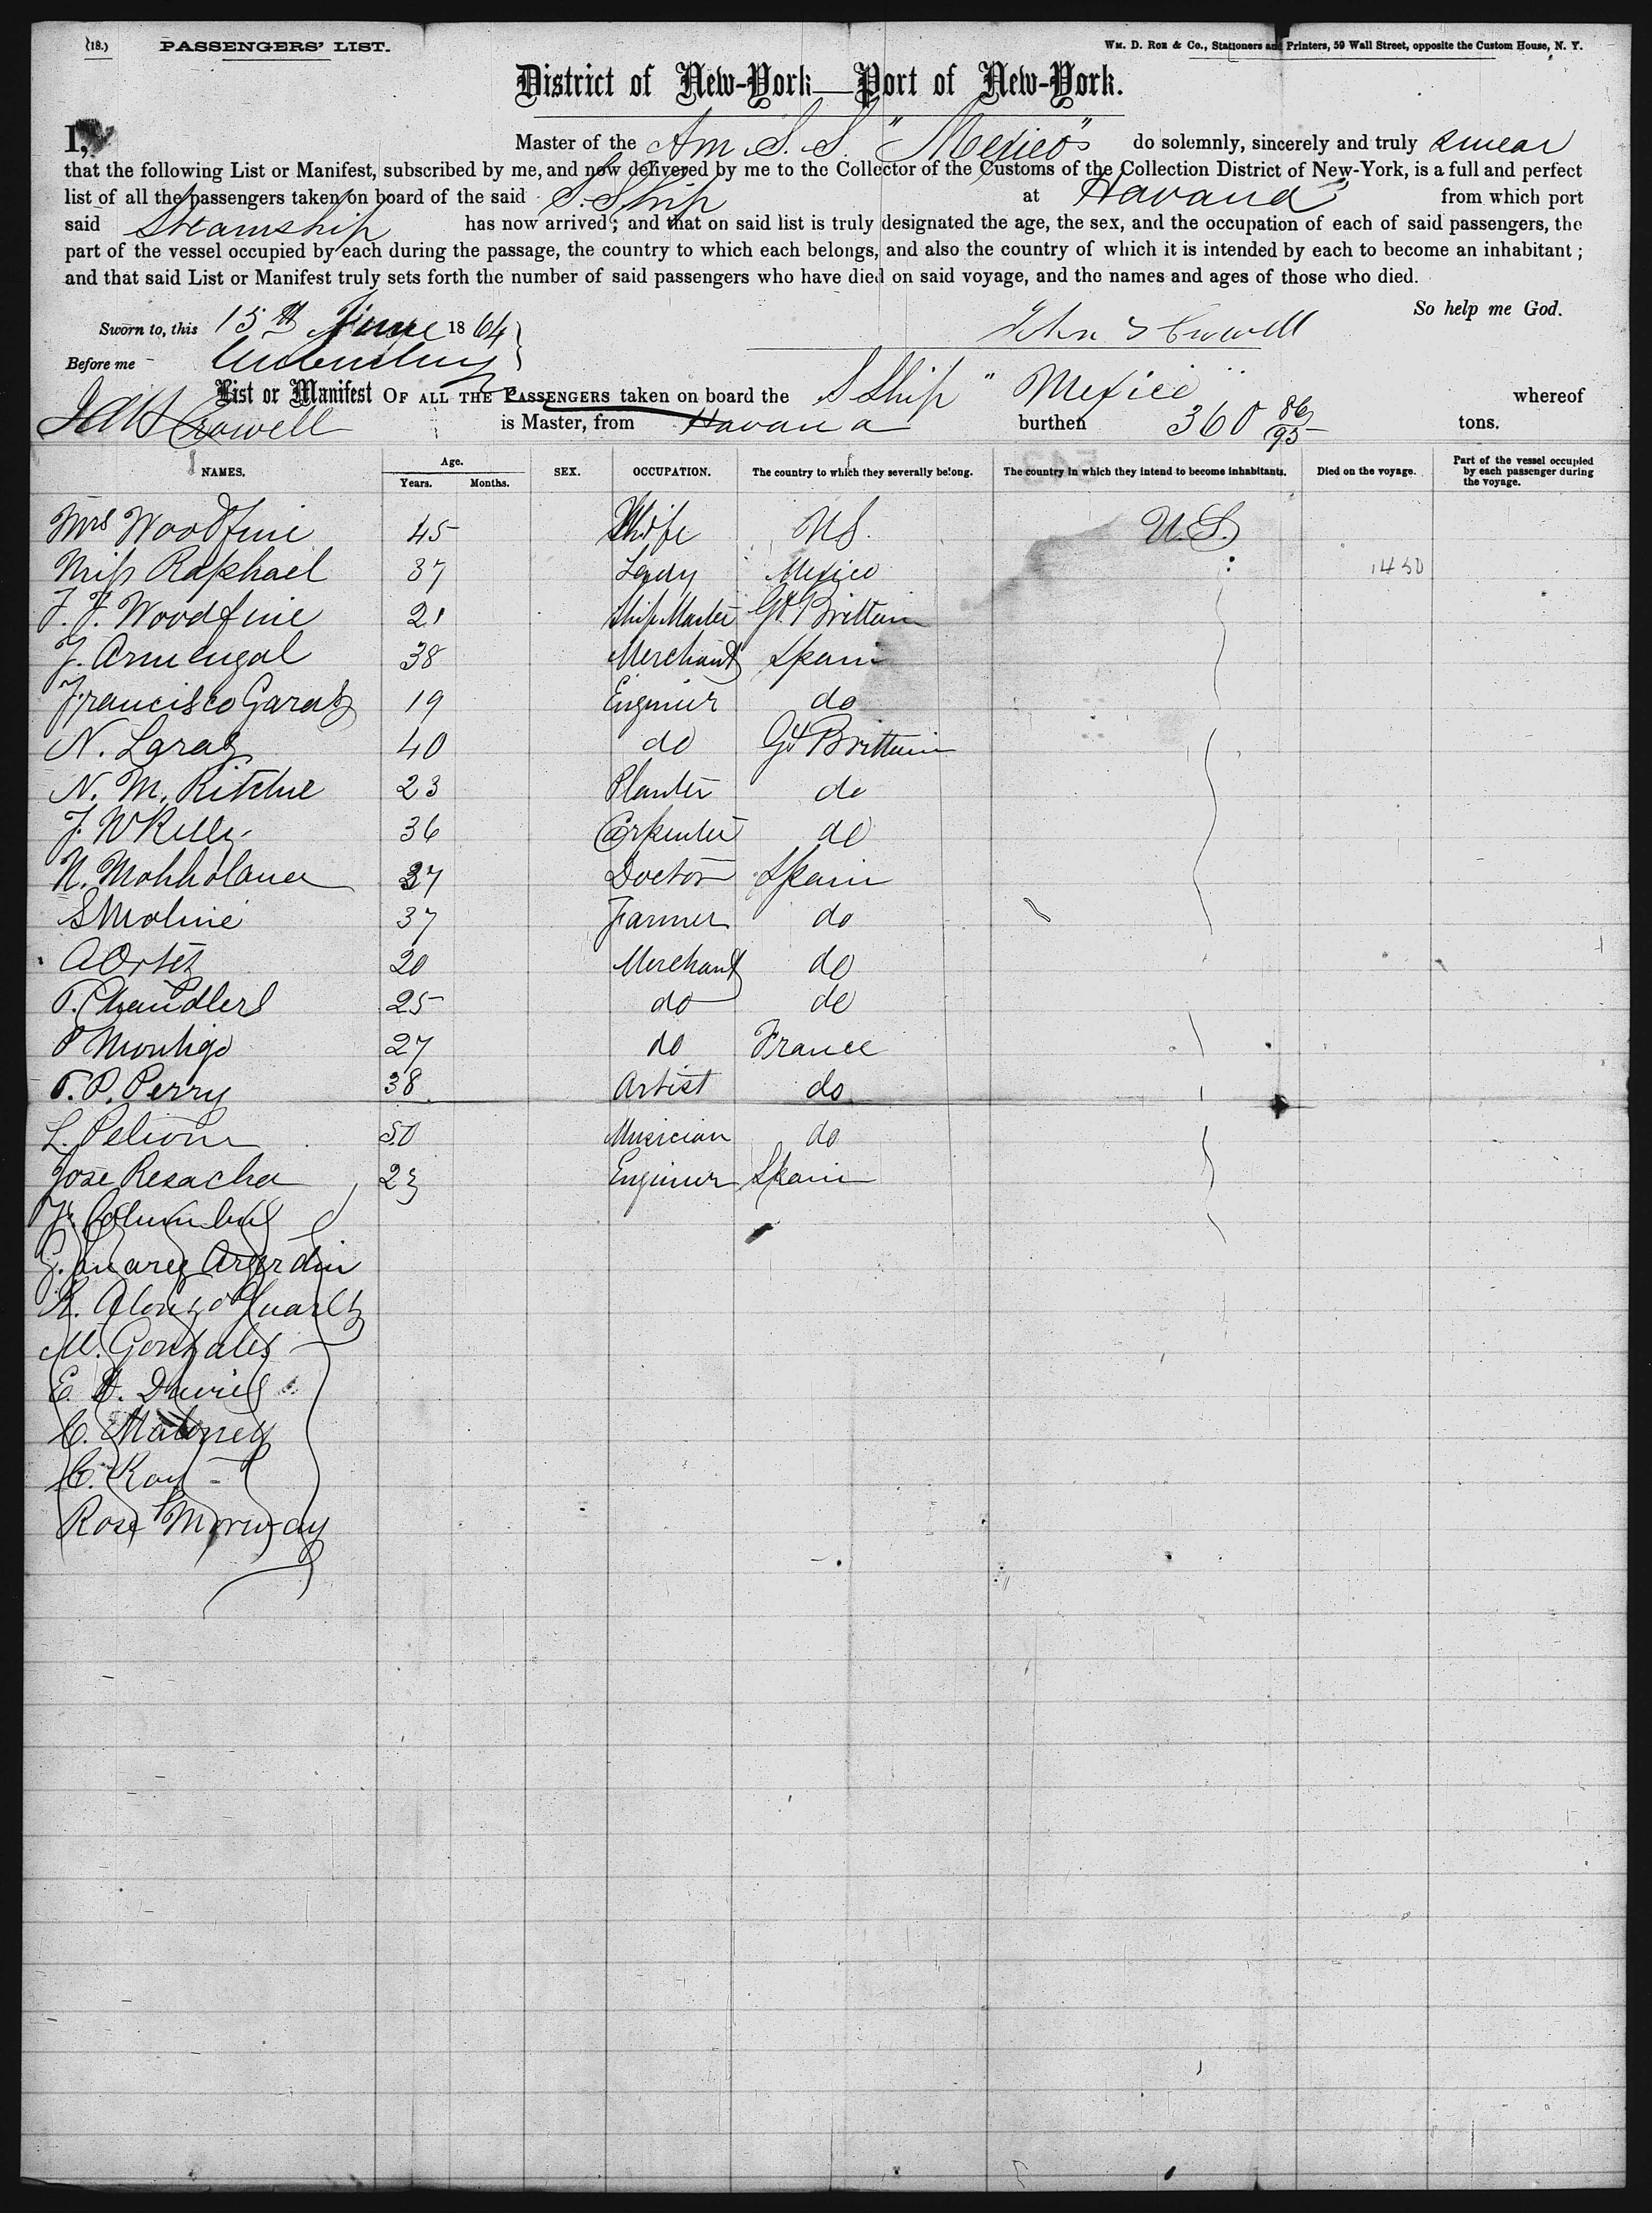 (18.) PASSENGERS' LIST. Wm. D. Roe & Co., Stationers and Printers, 59 Wall Street, opposite the Custom House, N. Y.
District of New-York—Port of New-York.
I, Master of the Am S. S. "Mexico" do solemnly, sincerely and truly swear
that the following List or Manifest, subscribed by me, and now delivered by me to the Collector of the Customs of the Collection District of New-York, is a full and perfect
list of all the passengers taken on board of the said S. Ship at Havana from which port
said Steamship has now arrived; and that on said list is truly designated the age, the sex, and the occupation of each of said passengers, the
part of the vessel occupied by each during the passage, the country to which each belongs, and also the country of which it is intended by each to become an inhabitant;
and that said List or Manifest truly sets forth the number of said passengers who have died on said voyage, and the names and ages of those who died.
So help me God.
Sworn to, this 15th June 1864 John Crowell
Before me
List or Manifest OF ALL THE PASSENGERS taken on board the S Ship "Mexico" whereof
Crowell is Master, from Havana burthen 360 86/95 tons.
NAMES. Age. Years. Months. SEX. OCCUPATION. The country to which they severally belong. The country in which they intend to become inhabitants. Died on the voyage. Part of the vessel occupied by each passenger during the voyage.
Mrs Woodfine 45 Wife US. U.S.
Miss Raphael 37 Lady Mexico 1450
J. J. Woodfine 21 Ship Master Gt Brittain
J. Armengol 38 Merchant Spain
Francisco 19 Engineer do
N. 40 do Gt Brittain
N. M. Ritchie 23 Planter do
J. W Kelly 36 Carpenter do
N. 37 Doctor Spain
S Moline 37 Farmer do
A Ortez 20 Merchant do
T. Chandlers 25 do do
P Montigo 27 do France
T. P. Perry 38 Artist do
L. 50 Musician do
Jose Resacha 23 Engineer Spain
Columbus
G.
R. Alonzo
M. Gonzales
E. D.
C. Maloney
C. Ray
Rose Morway